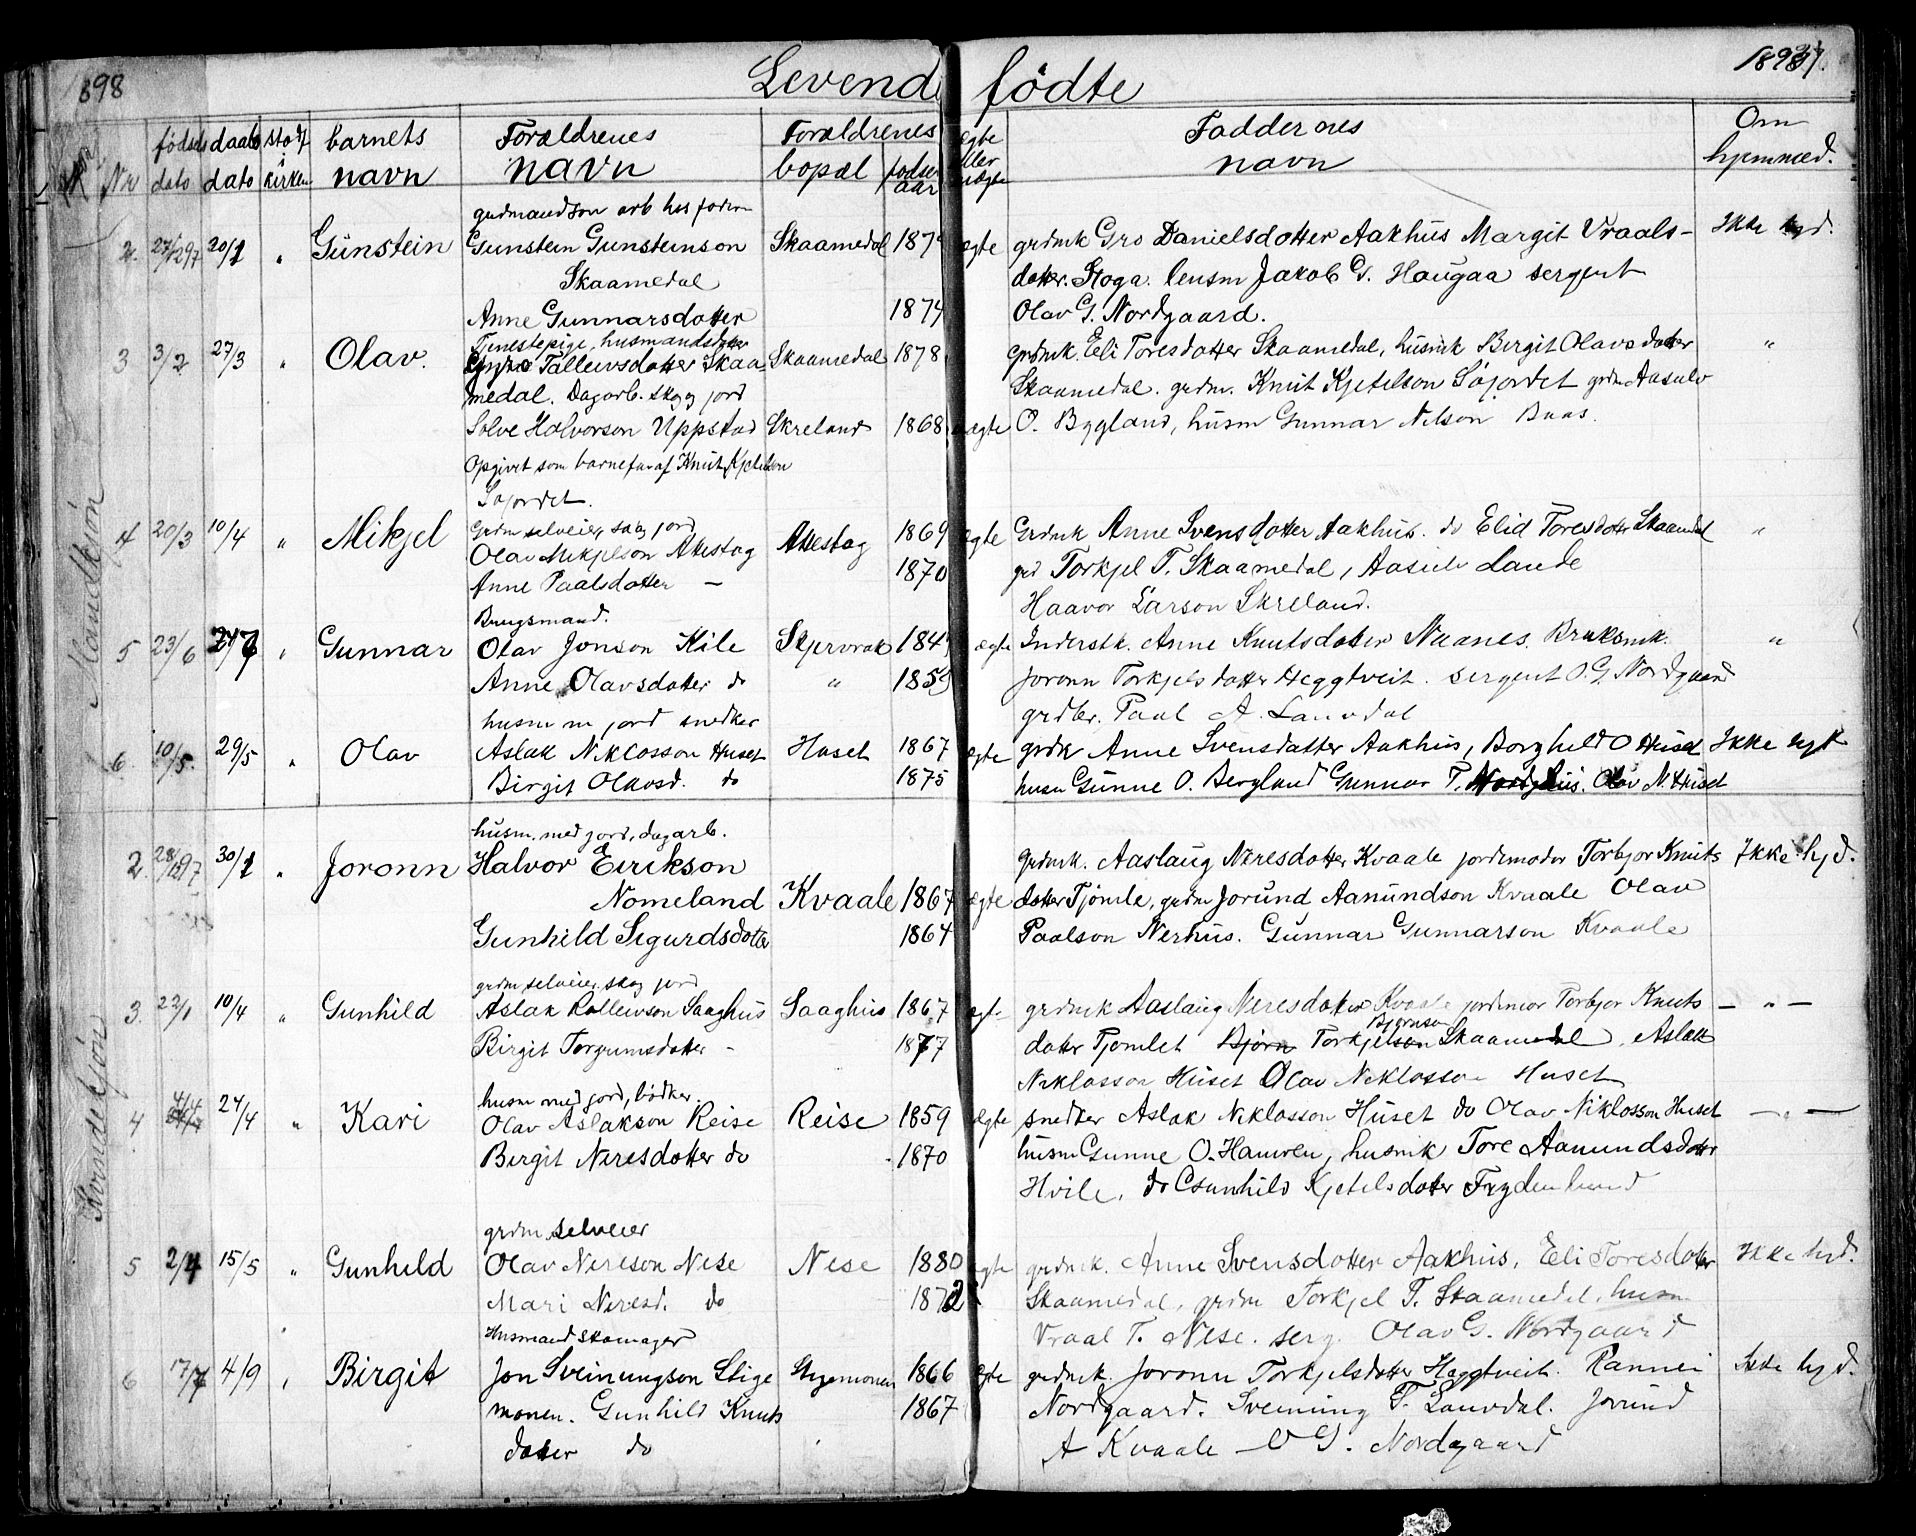 1898
Levende fødte
1898
fødsels daabs stad barnets Forældrenes Forældrenes ægte Faddernes Om
Nr dato dato i kirken navn navn bopæl fødsels aar eller uægte navn hjemmed.
Mandkjøn
gudmandson arb hos foræ
2. 27/12 97 20/1 " Gunstein Gunstein Gunsteinson Skaamedal 187 ægte grdmk Gro Danielsdotter Aakhus Margit Vraals- Ikke hjd.
Skaamedal dotter. Stoga. lensm Jakob O. Haugaa sergent
Anne Gunnarsdotter 1874 Olav G. Nordgaard.
Tjenestepige, husmandsdatter
3 3/2 27/3 " Olav. Gyro Tallevsdotter Skaa- Skaamedal 1878 grdmk. Eli Toresdotter Skaamedal, husmk Birgit Olavsdotter "
medal. Dagarb. skog jord Skaamedal. grdm. Knut Kjetelson Søjordet grdm Aasulv
Solve Halvorson Uppstad Skreland 1868 uægte O. Bygland, husm Gunnar Nelson Baas.
Opgivet som barnefar af Knut Kjetelson
Søjordet.
Grdm selveier, skog jord
4 20/3 10/4 " Mikjel Olav Mikjelson Akestog Akestog 1869 ægte Grdmk Anne Svensdotter Aakhus. do Elid Toresdotter Skaamdal "
Anne Paalsdotter — 1870 grd Torkjel T. Skaamedal, Aasulv Lande
Haavor Larson Skreland.
Brugsmand.
5 23/6 24/7 " Gunnar Olav Jonson Kile Skjervrak 184 ægte Inderstk. Anne Knutsdotter Naanes. Bruksmk. "
Anne Olavsdotter do " 1859 Joronn Torkjelsdotter Heggtveit. sergent O.G. Nordgaard
grdbr. Paal A. Lauvdal
husm m jord snedker
6. 10/5. 29/5 " Olav Aslak Niklosson Huset Huset 1867 ægte grdk Anne Svensdatter Aakhus, Borghild O Huset Ikke hjd
Birgit Olavsd. do 1875 husm Gunne O. Bergland Gunnar T. Olav N. Huset
Kvindekjøn
husm. med jord, dagarb.
2 28/12 97 30/1 " Joronn Halvor Eirikson grdmk. Aaslaug Neresdotter Kvaale jordemoder Torbjor Knuts Ikke hjd.
Nomeland Kvaale 1867 ægte dotter Tjomle, grdm Jorund Aamundson Kvaale Olav
Gunhild Sigurdsdotter 1864 Paalson Nerhus. Gunnar Gunnarson Kvaale
grdm selveier, skog jord
3. 22/1 10/4 " Gunhild Aslak Rollevson Saaghus Saaghus 1867 ægt- grdmk Aaslaug Neresdotter Kvaale jordemor Torbjor Knuts — " —
Birgit Torgrumsdotter - 1877 datter Tjomlet Bjørn Torkjelson Bjørnson Skaamedal, Aslak
Niklosson Huset Olav Niklosson Huset
husm med jord, bødker.
4 4/4 24/4 " Kari Olav Aslakson Reise Reise 1859 ægte snedker Aslak Niklosson Huset do Olav Niklosson Huset — " —
Birgit Neresdotter do 1870 husm Gunne O. Hamren, husmk Tore Aamundsdotter
Hvile, do Gunhild Kjetelsdotter Frydenlund
grdm selveier
5 2/4 15/5 " Gunhild Olav Nereson Nese Nese 1880 ægte grdmk. Anne Svensdotter Aakhus, Eli Toresdotter Ikke hjd.
Mari Neresd. do 1872 Skaamedal, grdm Torkjel T. Skaamedal, husm
Vraal T. Nese. serg. Olav G. Nordgaard
Husmand skomager
6 17/7 4/9 " Birgit Jon Sveinungson Stige Stigemonen 1866 ægte grdmk. Joronn Torkjelsdotter Heggtveit. Rannei Ikke hjd.
monen. Gunhild Knuts 1867 Nordgaard. Sveinung T. Lauvdal. Jorund
dotter do A Kvaale O G. Nordgaard